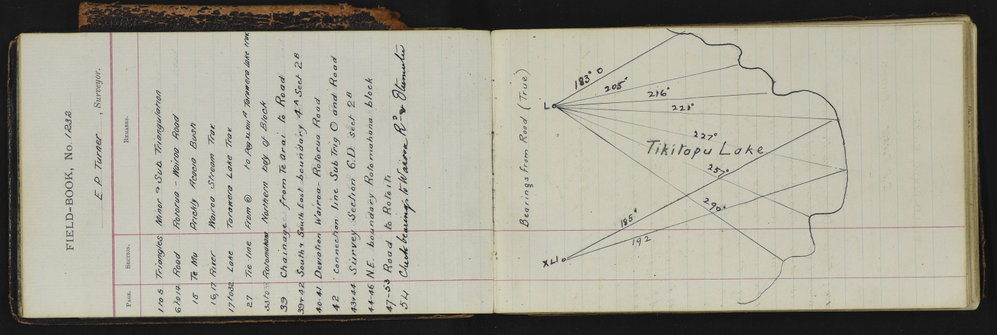 FIELD-BOOK, No. 1232
E P Turner, Surveyor.
PAGE. SECTION. REMARKS.
1 to 5 Triangles Minor & Sub Triangulation
6 to 14 Road Rotorua - Wairoa Road
15 Te Mu Prickly Acacia Bush
16, 17 River Wairoa Stream Trav
17 to 32 Lake Tarawera Lake Trav
27 Tie line From to Peg Tarawera lake trav
Rotomahana Northern bdy of Block
39 Chainage from Te Ariki to Road
39 & 42 South & South East boundary 4A Sect 2B
40-41 Deviation Wairoa - Rotorua Road
42 Connection line Sub Trig O and Road
43 & 44 Survey Section 6.D. Sect 2B
44-46 N.E. boundary Rotomahana block
47-53 Road to Rotoiti
54 Check bearings to Wairoa Rd &
Bearings from Road (True)
L
183° 0
205°
216°
221°
227°
Tikitapu Lake
257°
290°
185°
192
XLI